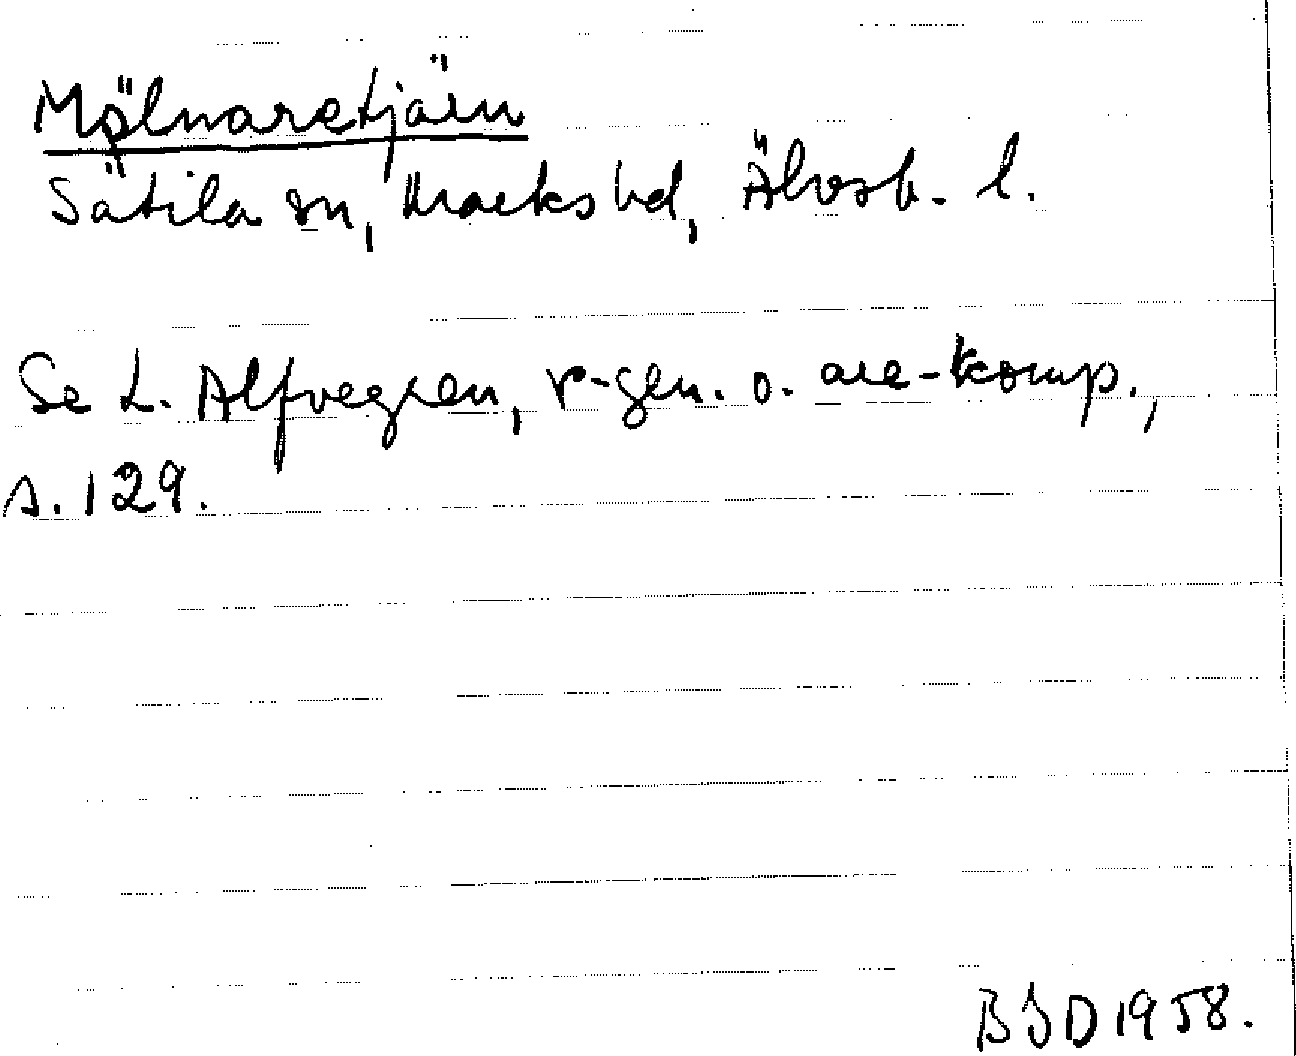 Mölnaretjärn
Sätila sn, Marks hd, Älvsb. l.
Se L. Alfvegren, r-gen. o. are-komp.,
s. 129.
BSD 1958.